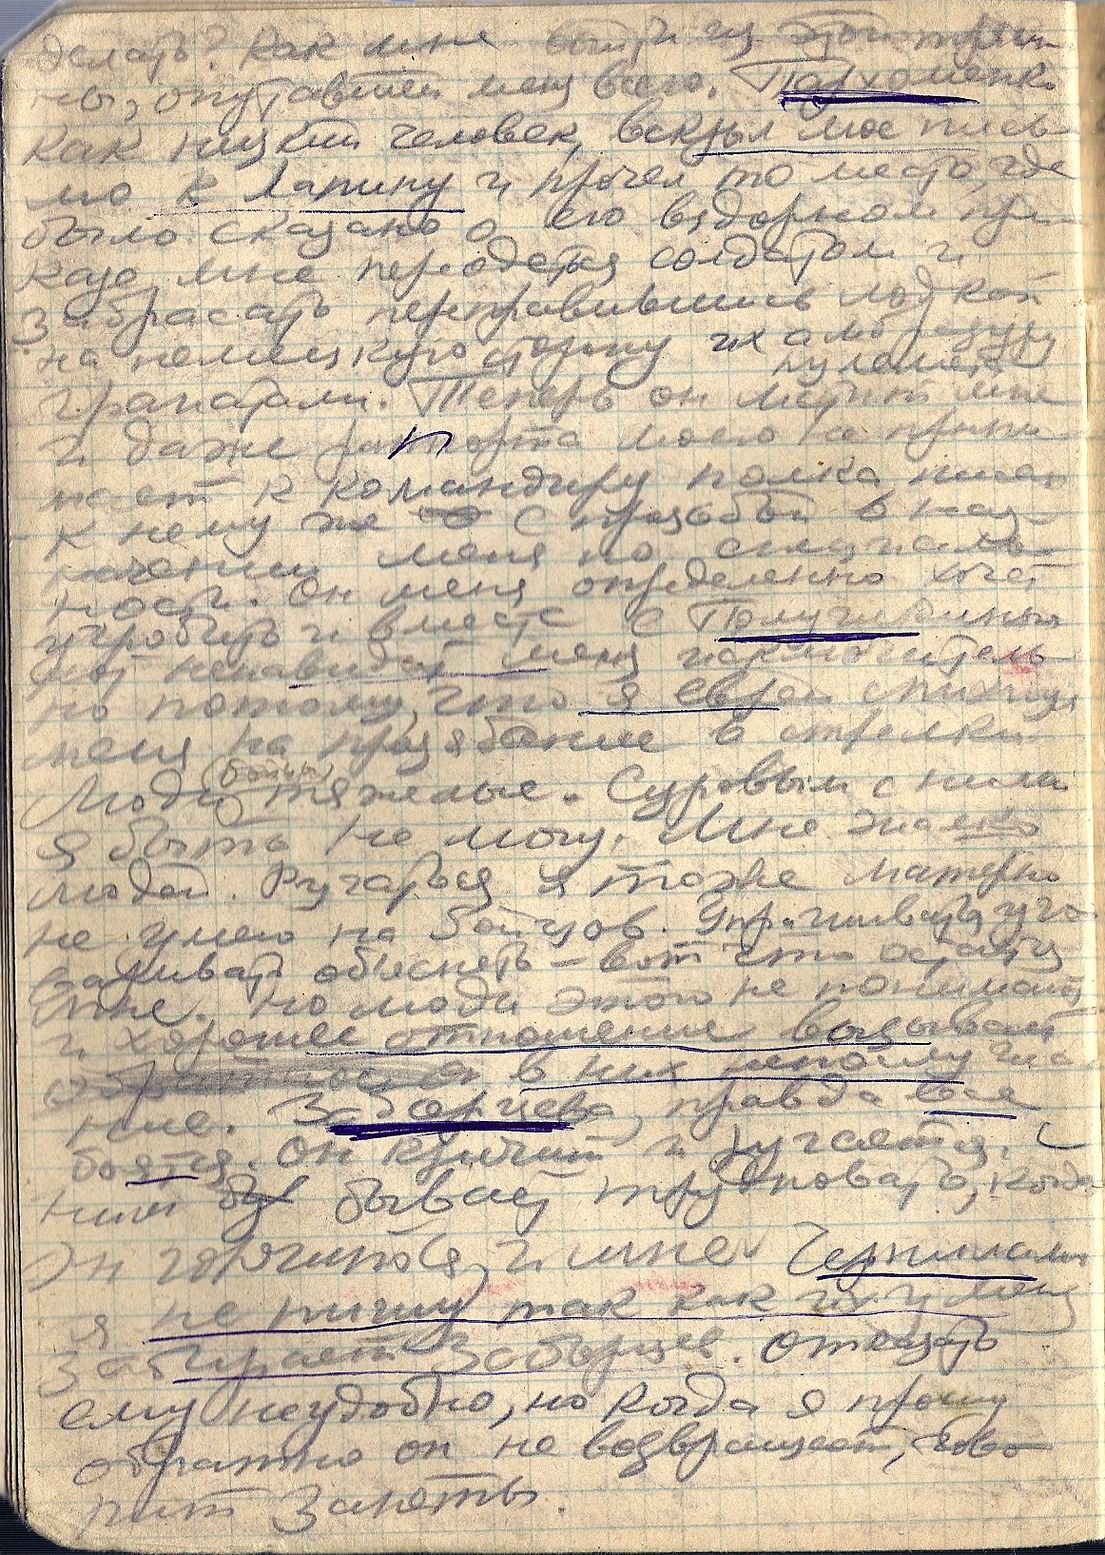 делать? Как мне выйти из этой трясины,
ны, опутавшей меня всего. Пархоменко
как низкий человек, вскрыл мое пись-
мо к Лапину и прочел то место, где
было сказано о его вздорном при-
казе мне переодеться солдатом и
забрасать переправившись лодкой
на немецкую сторону их амбразуру
пулемета
гранатами. Теперь он мстит мне
и даже рапорта моего не прини
мает к командиру полка, пиши
к нему же с просьбой в наз-
начении меня по специаль-
ности. Он меня определенно хочет
угробить и вместе с Полушкиным
ненавидят меня исключитель
но потому, что я еврей спихнув
меня на прозябание в стрелки.
(бойцы)
Люди тяжелые. Суровым с ними
я быть не могу. Мне жалко
людей. Ругаться я тоже матерно
не умею на бойцов. Упрашивать, уго-
варивать объяснять – вот что остается
мне. Но люди этого не понимают
и хорошее отношение вызывает
в них непослуша
ние. Заборцева, правда все
боятся. Он кричит и ругается. С
ним бывает трудновато, когда
он горячится, и мне Чернилами
я не пишу так как их у меня
забирает Заборцев. Отказать
ему неудобно, но когда я прошу
обратно он не возвращает, гово-
рит заняты.